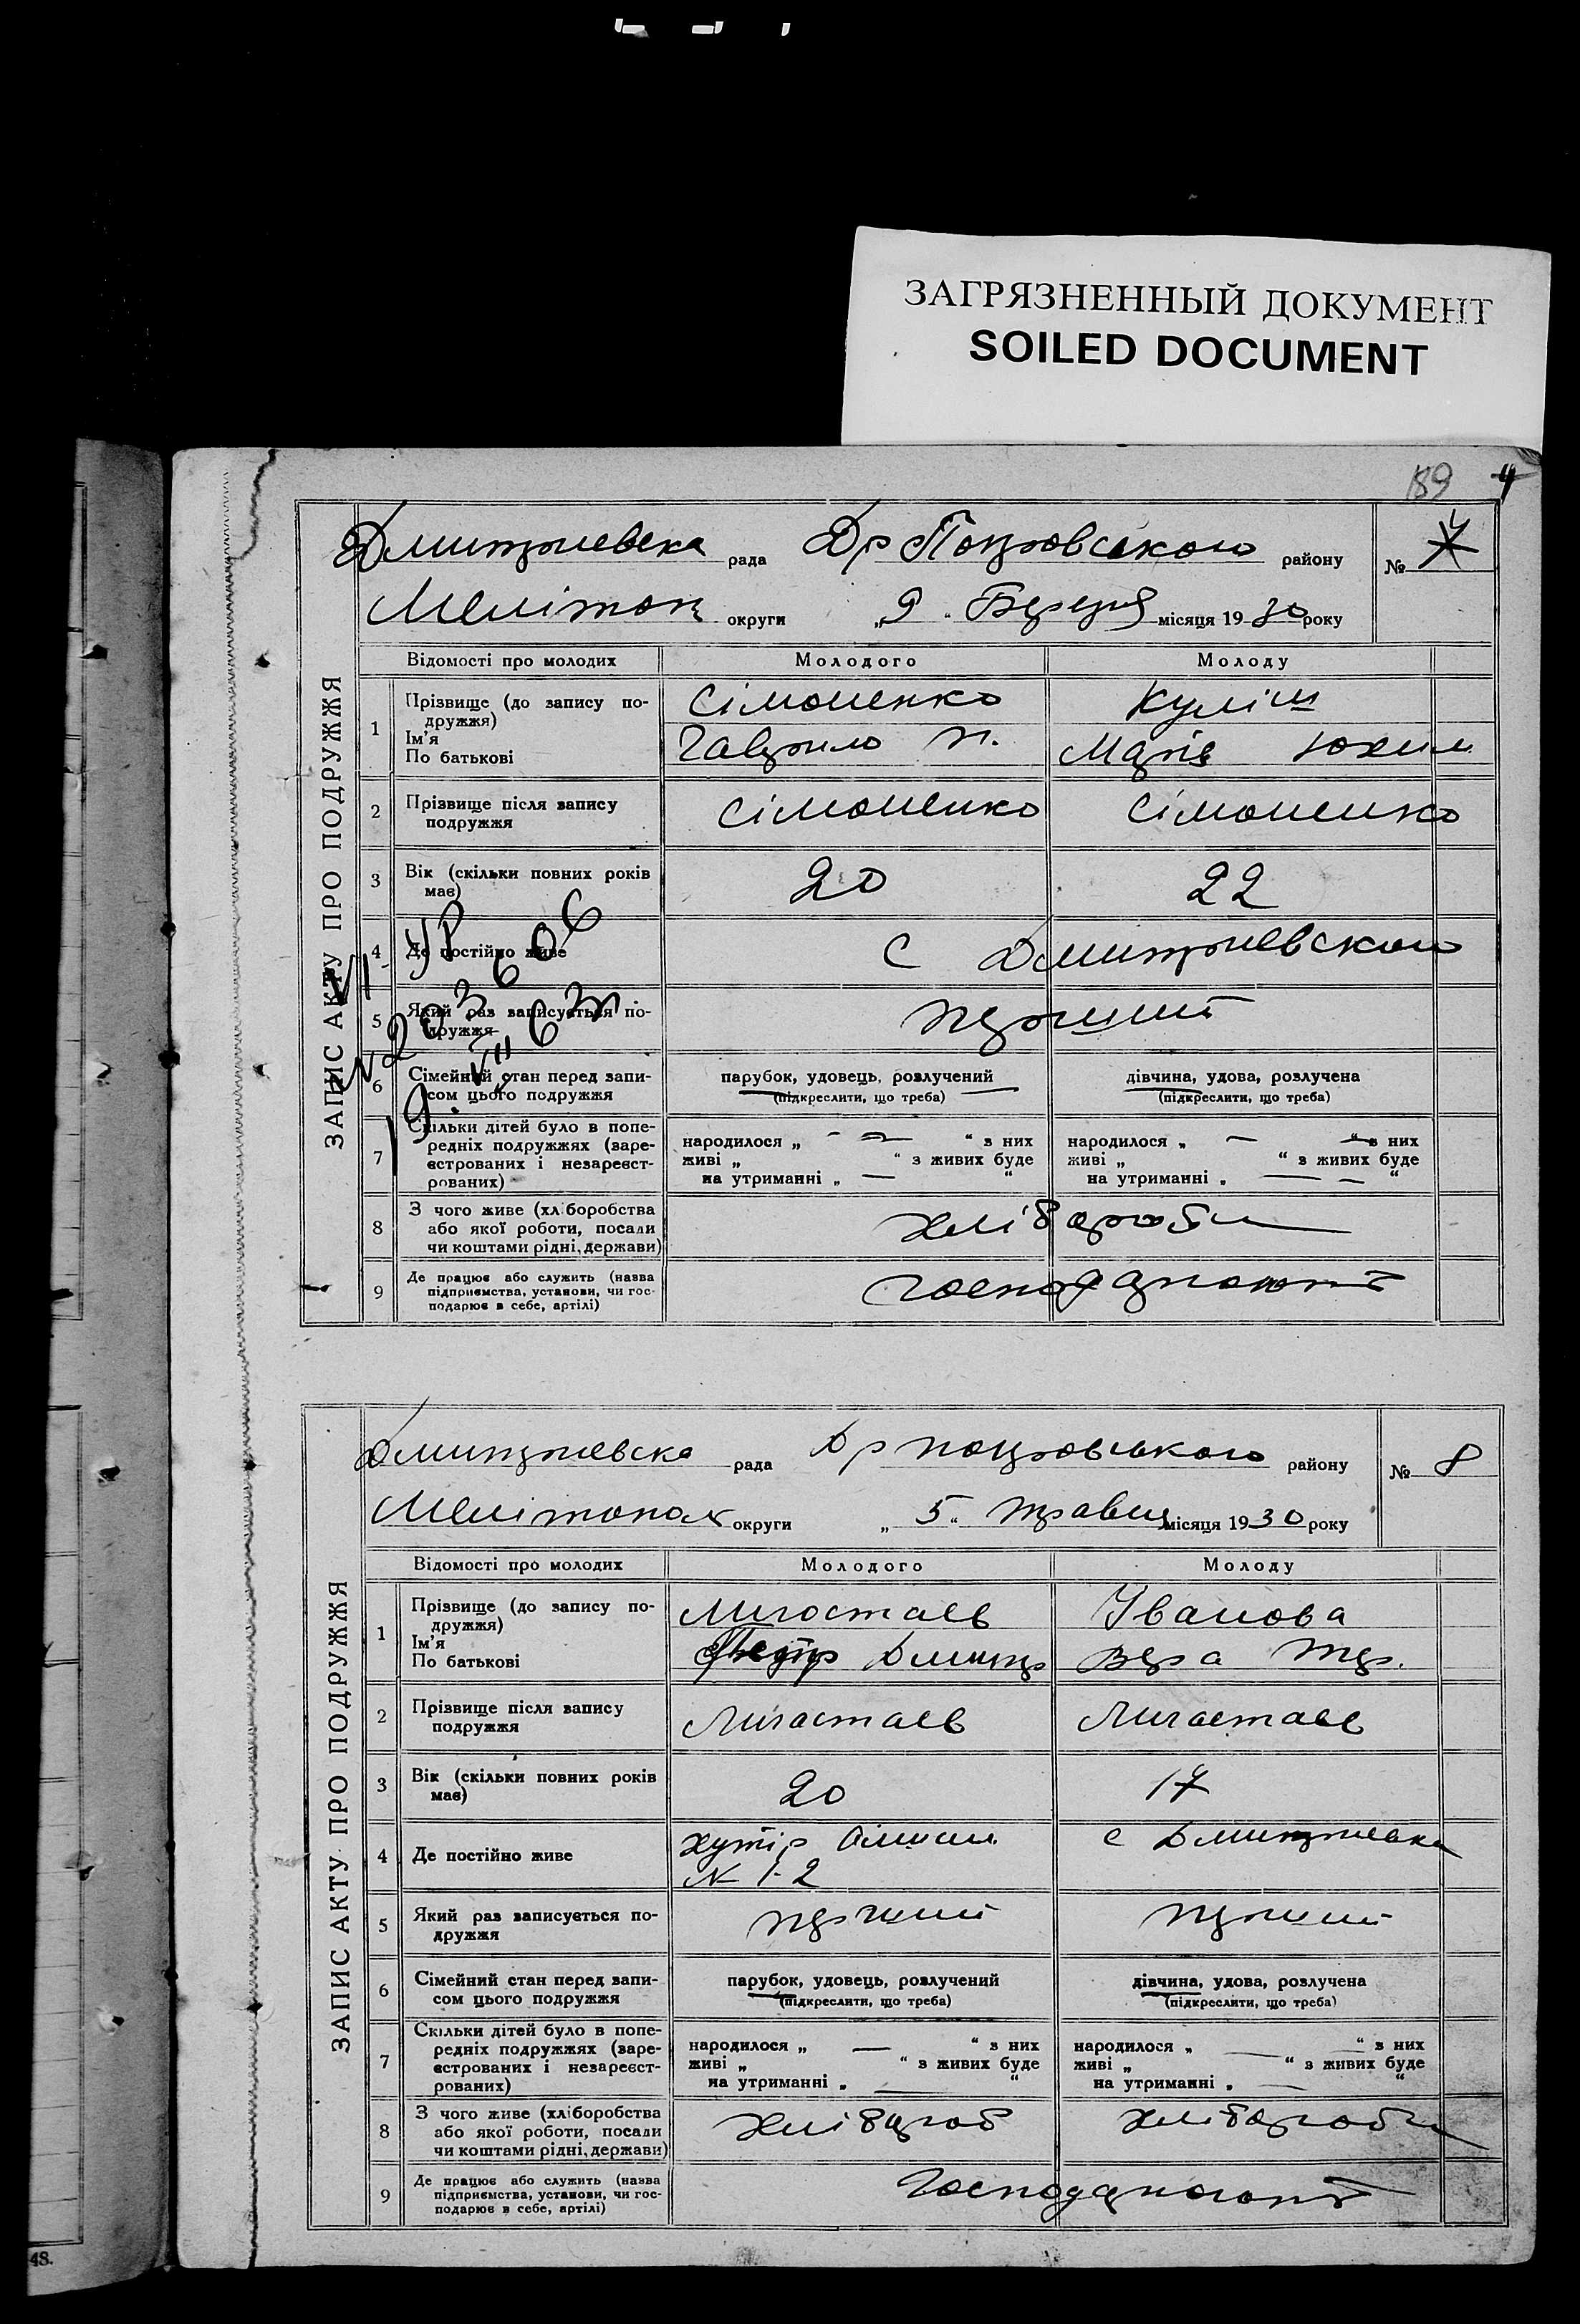 ЗАГРЯЗНЕННЫЙ ДОКУМЕНТ
SOILED DOCUMENT
189 4
ЗАПИС АКТУ ПРО ПОДРУЖЖЯ
Дмитриевска рада Др Покровського району № 7
Меліток округи „9“ Березня місяця 1930 року
Відомості про молодих Молодого Молоду
1 Прізвище (до запису подружжя) Сімоненко Куліш
Ім'я
По батькові Гаврило П. Марія Юхим
2 Прізвище після запису
подружжя Сімоненко Сімоненко
3 Вік (скільки повних років
має) 20 22
4 Де постійно живе С Дмитриевского
5 Який раз записується по-
дружжя перший
6 Сімейний стан перед запи- парубок, удовець, розлучений дівчина, удова, розлучена
сом цього подружжя (підкреслити, що треба) (підкреслити, що треба)
7 Скільки дітей було в попе-
редніх подружжях (заре- народилося „ — “ з них народилося „ — “ з них
єстрованих і незареєст- живі „ “ з живих буде живі „ “ з живих буде
рованих) на утриманні „ — “ на утриманні „ — “
8 З чого живе (хліборобства
або якої роботи, посади хліборобы
чи коштами рідні, держави)
9 Де працює або служить (назва
підприємства, установи, чи гос- господарюют
подарює в себе, артілі)
ЗАПИС АКТУ ПРО ПОДРУЖЖЯ
Дмитриевска рада Др покровського району № 8
Мелітопол округи „5“ травня місяця 1930 року
Відомості про молодих Молодого Молоду
1 Прізвище (до запису по-
дружжя) Лигостаев Іванова
Ім'я
По батькові Петр Дмитр Вера
2 Прізвище після запису
подружжя Лигастаев Лигастаев
3 Вік (скільки повних років
має) 20 17
4 Де постійно живе хутір с Дмитриевка
N 1-2
5 Який раз записується по-
дружжя перший перший
6 Сімейний стан перед запи- парубок, удовець, розлучений дівчина, удова, розлучена
сом цього подружжя (підкреслити, що треба) (підкреслити, що треба)
7 Скільки дітей було в попе-
редніх подружжях (заре- народилося „ — “ з них народилося „ — “ з них
єстрованих і незареєст- живі „ “ з живих буде живі „ “ з живих буде
рованих) на утриманні „ — “ на утриманні „ — “
8 З чого живе (хліборобства
або якої роботи, посади хлібороб хлібороби
чи коштами рідні, держави)
9 Де працює або служить (назва
підприємства, установи, чи гос- Господарюют
подарює в себе, артілі)
48.